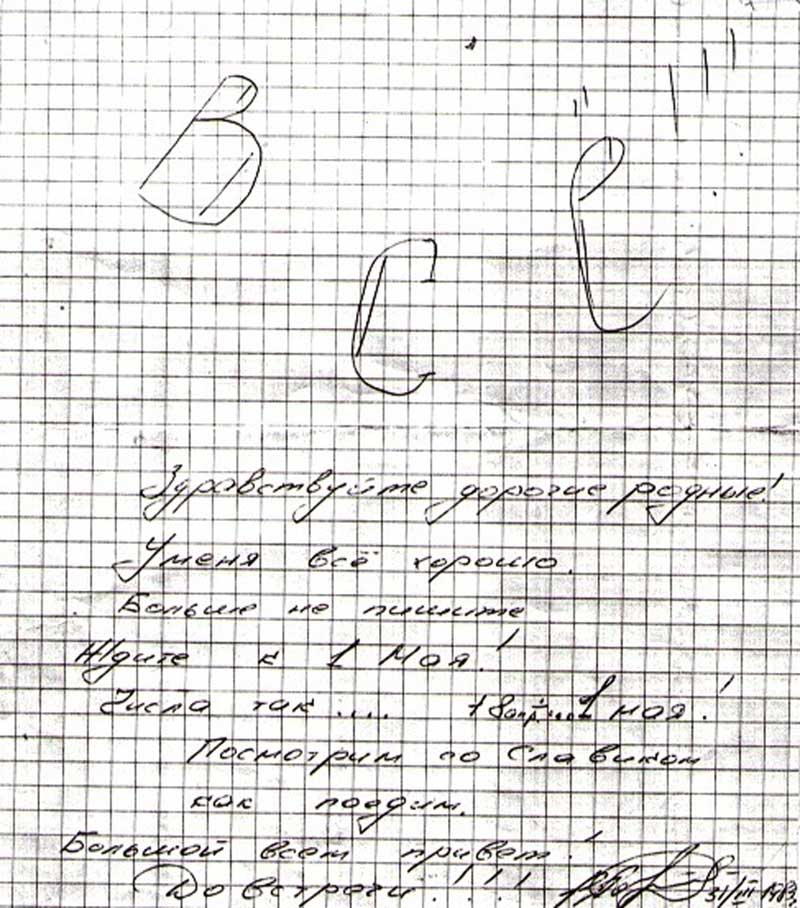 В С Ё !!!
Здравствуйте дорогие родные!
У меня всё хорошо.
Больше не пишите
Ждите к 1 Мая!
Числа так .... 1 мая!
Посмотрим со Славиком
как поедим.
Большой всем привет!
До встречи!!!! 31/III-1983